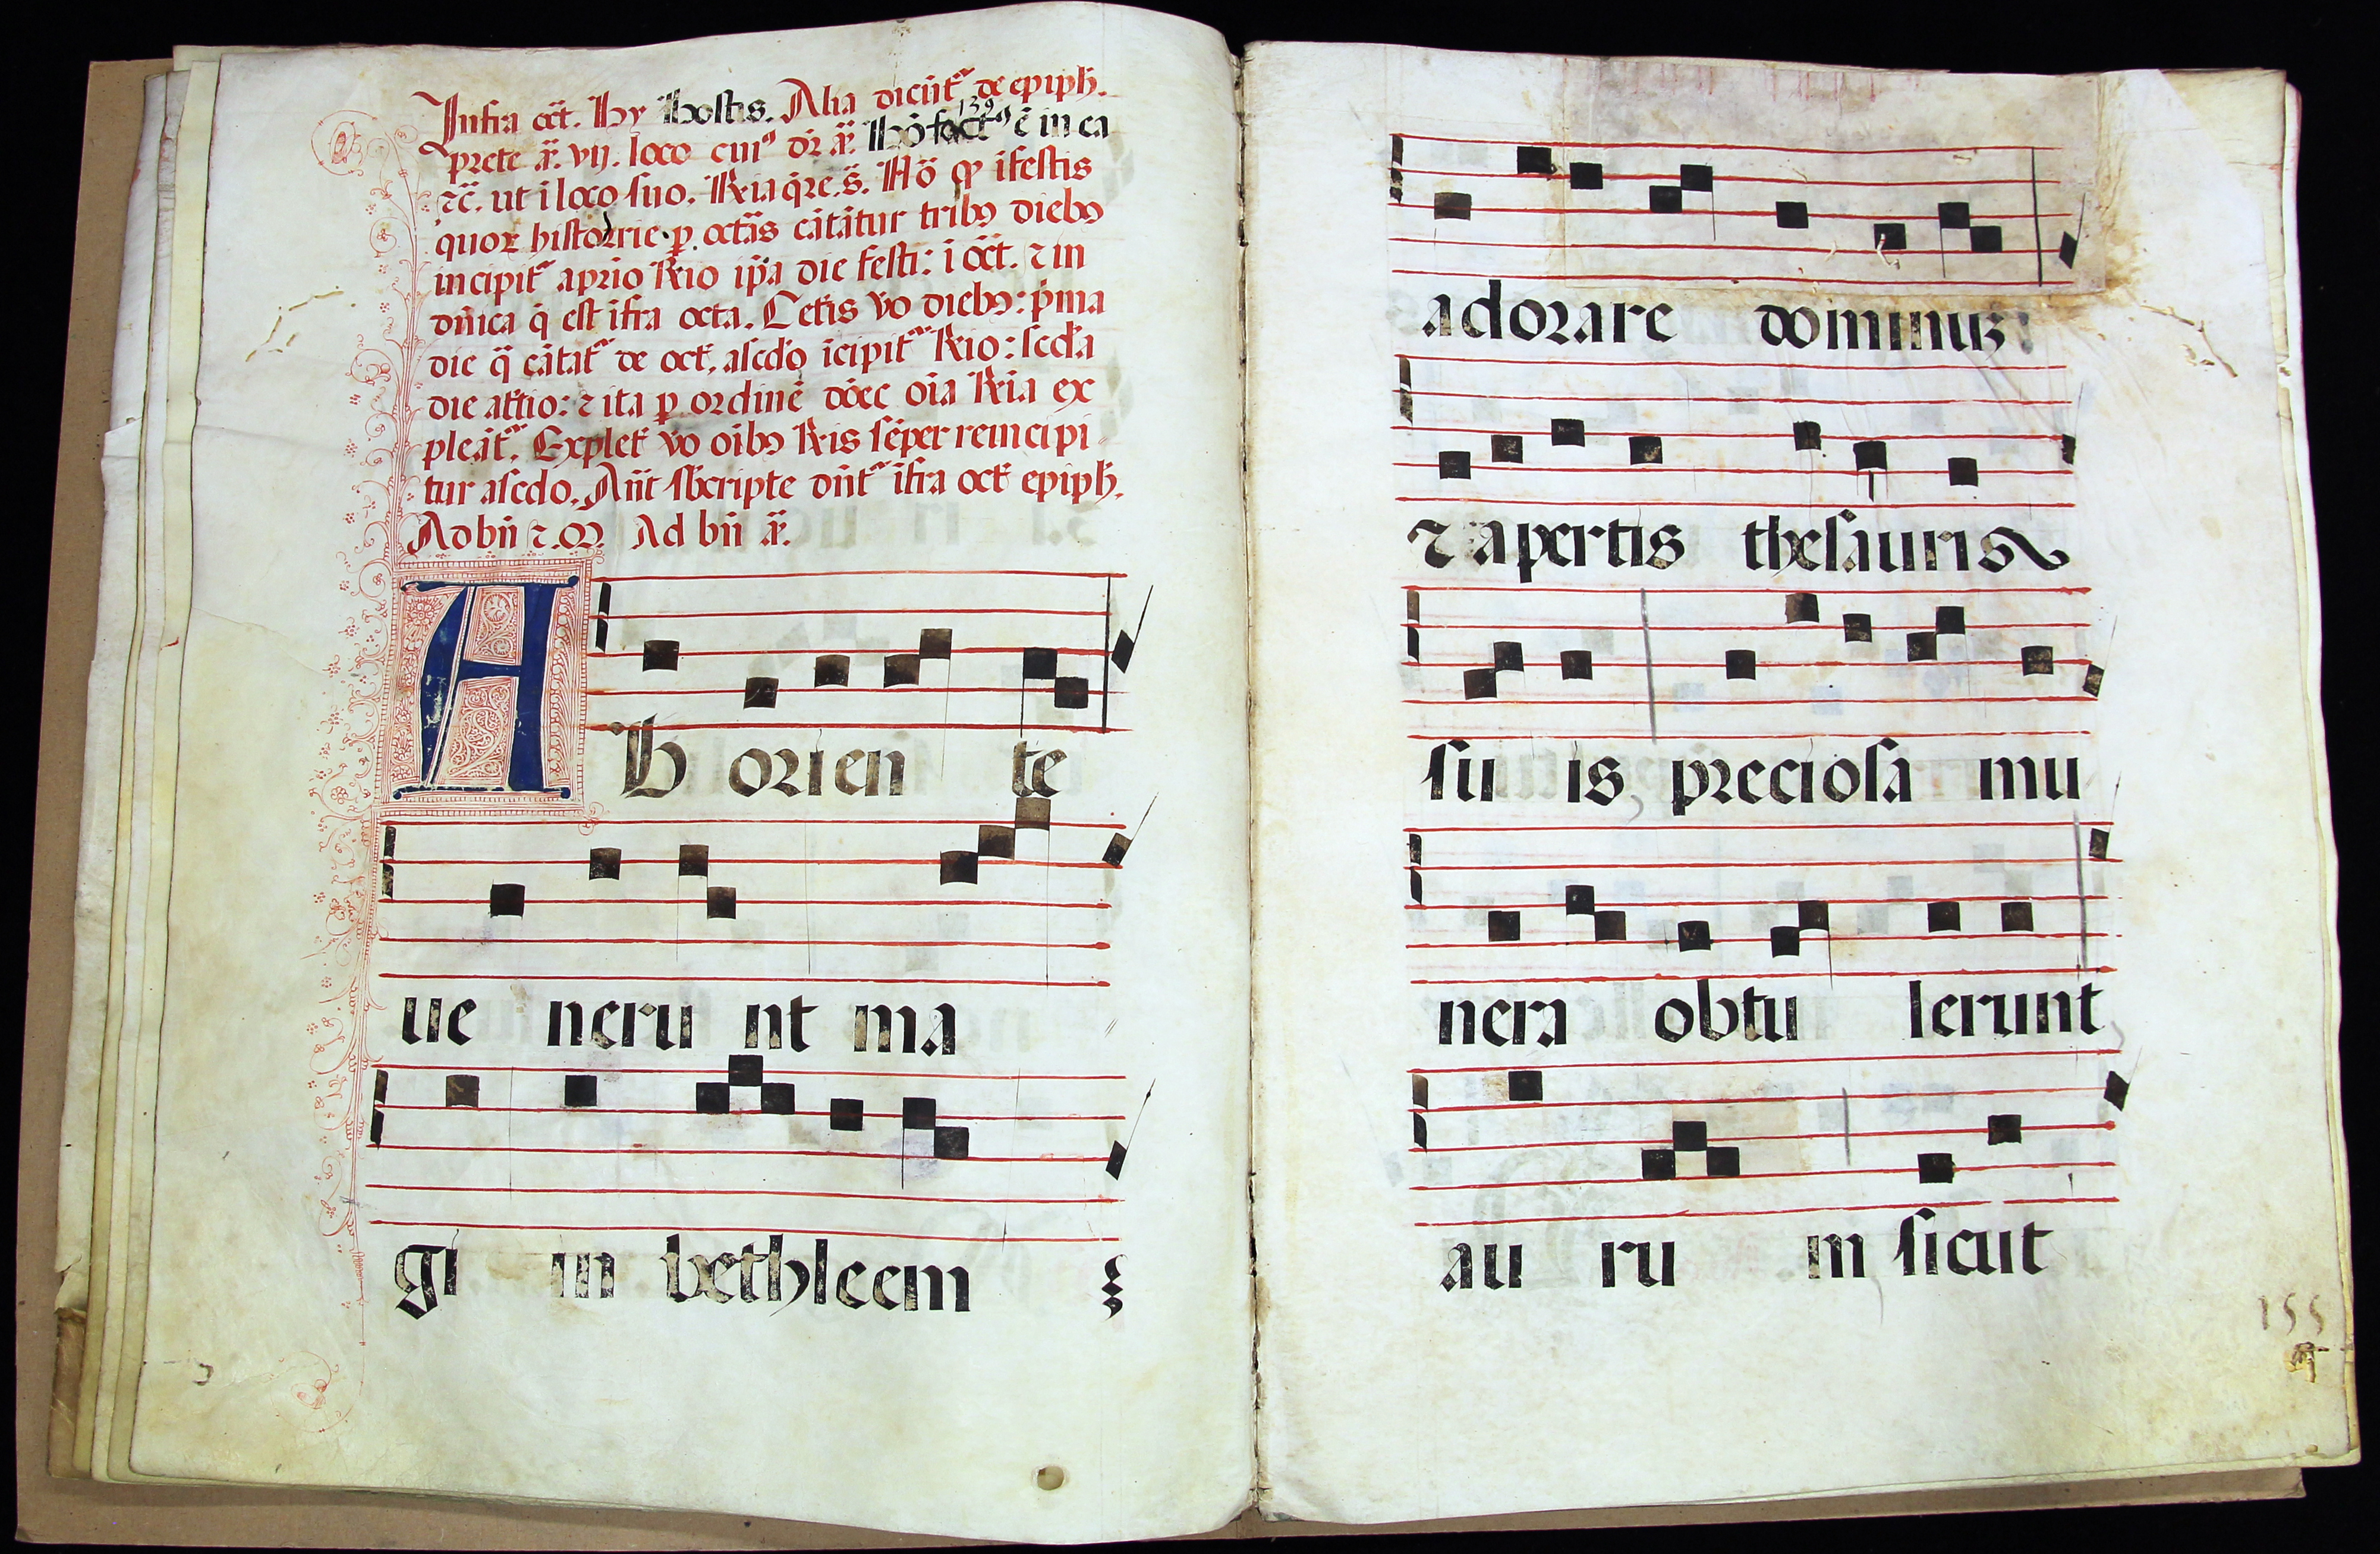 Infra oct̄. Hy Hostis. Alia dicūt᷑ de epiph.
139
prete ā. vij. loco cuiꝰ dr̄ ā. Hō factꝰ ē in ea
⁊c̄. ut ī loco suo. R̄ia q̄re. s̄. Nō ꝙ ī festis
quoꝝ historie ꝑ octās cātātur tribꝫ diebꝫ
incipit᷑ a prīo R̄io ip̄a die festi: ī oct̄. ⁊ in
dn̄ica q̄ est ifra octa. Cet̄is v̄o diebꝫ: p̄ma
die q̄ cātat᷑ de oct̄. a sc̄do īcipit᷑ R̄io: sc̄da
die a t̄tio: ⁊ ita ꝑ ordinē dōec oīa R̄ia ex
pleāt᷑. Explet̄ v̄o oībꝫ R̄is sēper reincipi
tur a sc̄do. An̄t sb̄scripte dn̄t᷑ ifra oct̄ epiph.
Ad bn̄ ⁊. M. Ad bn̄ ā.
AB orien te
ue neru nt ma
gi in bethleem
adorare dominuꝫ:
⁊ apertis thesauris
su is preciosa mu
nera obtu lerunt
au ru m sicut
155